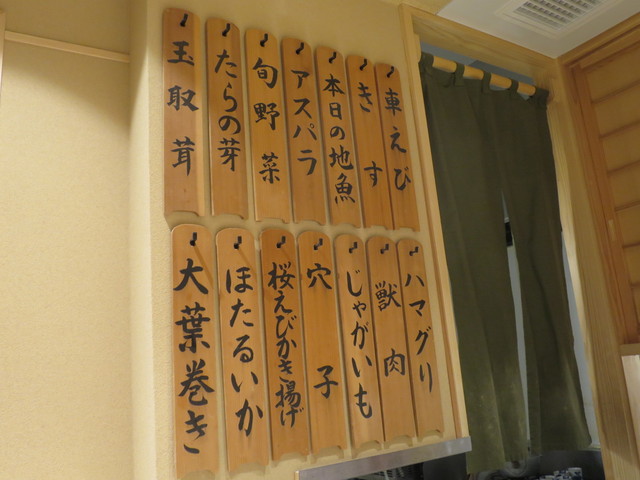 車えび
きす
本日の地魚
アスパラ
旬野菜
たらの芽
玉取茸
ハマグリ
獣肉
じゃがいも
穴子
桜えびかき揚げ
ほたるいか
大葉巻き